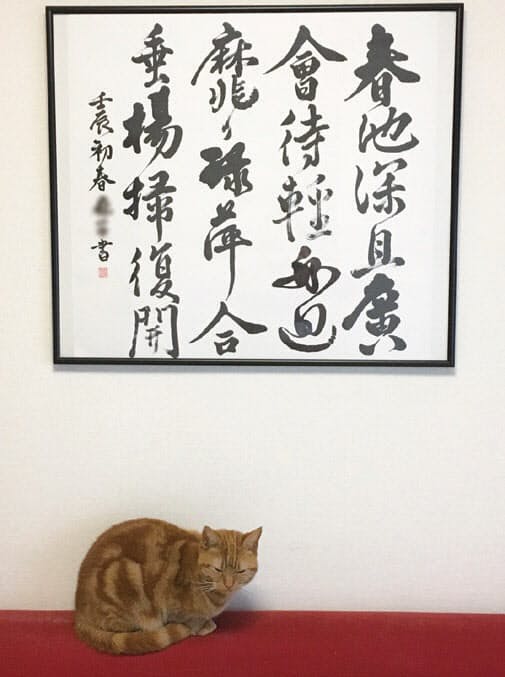 春池深且廣
會待輕舟迴
靡々緑萍合
垂楊掃復開
壬辰初春
書